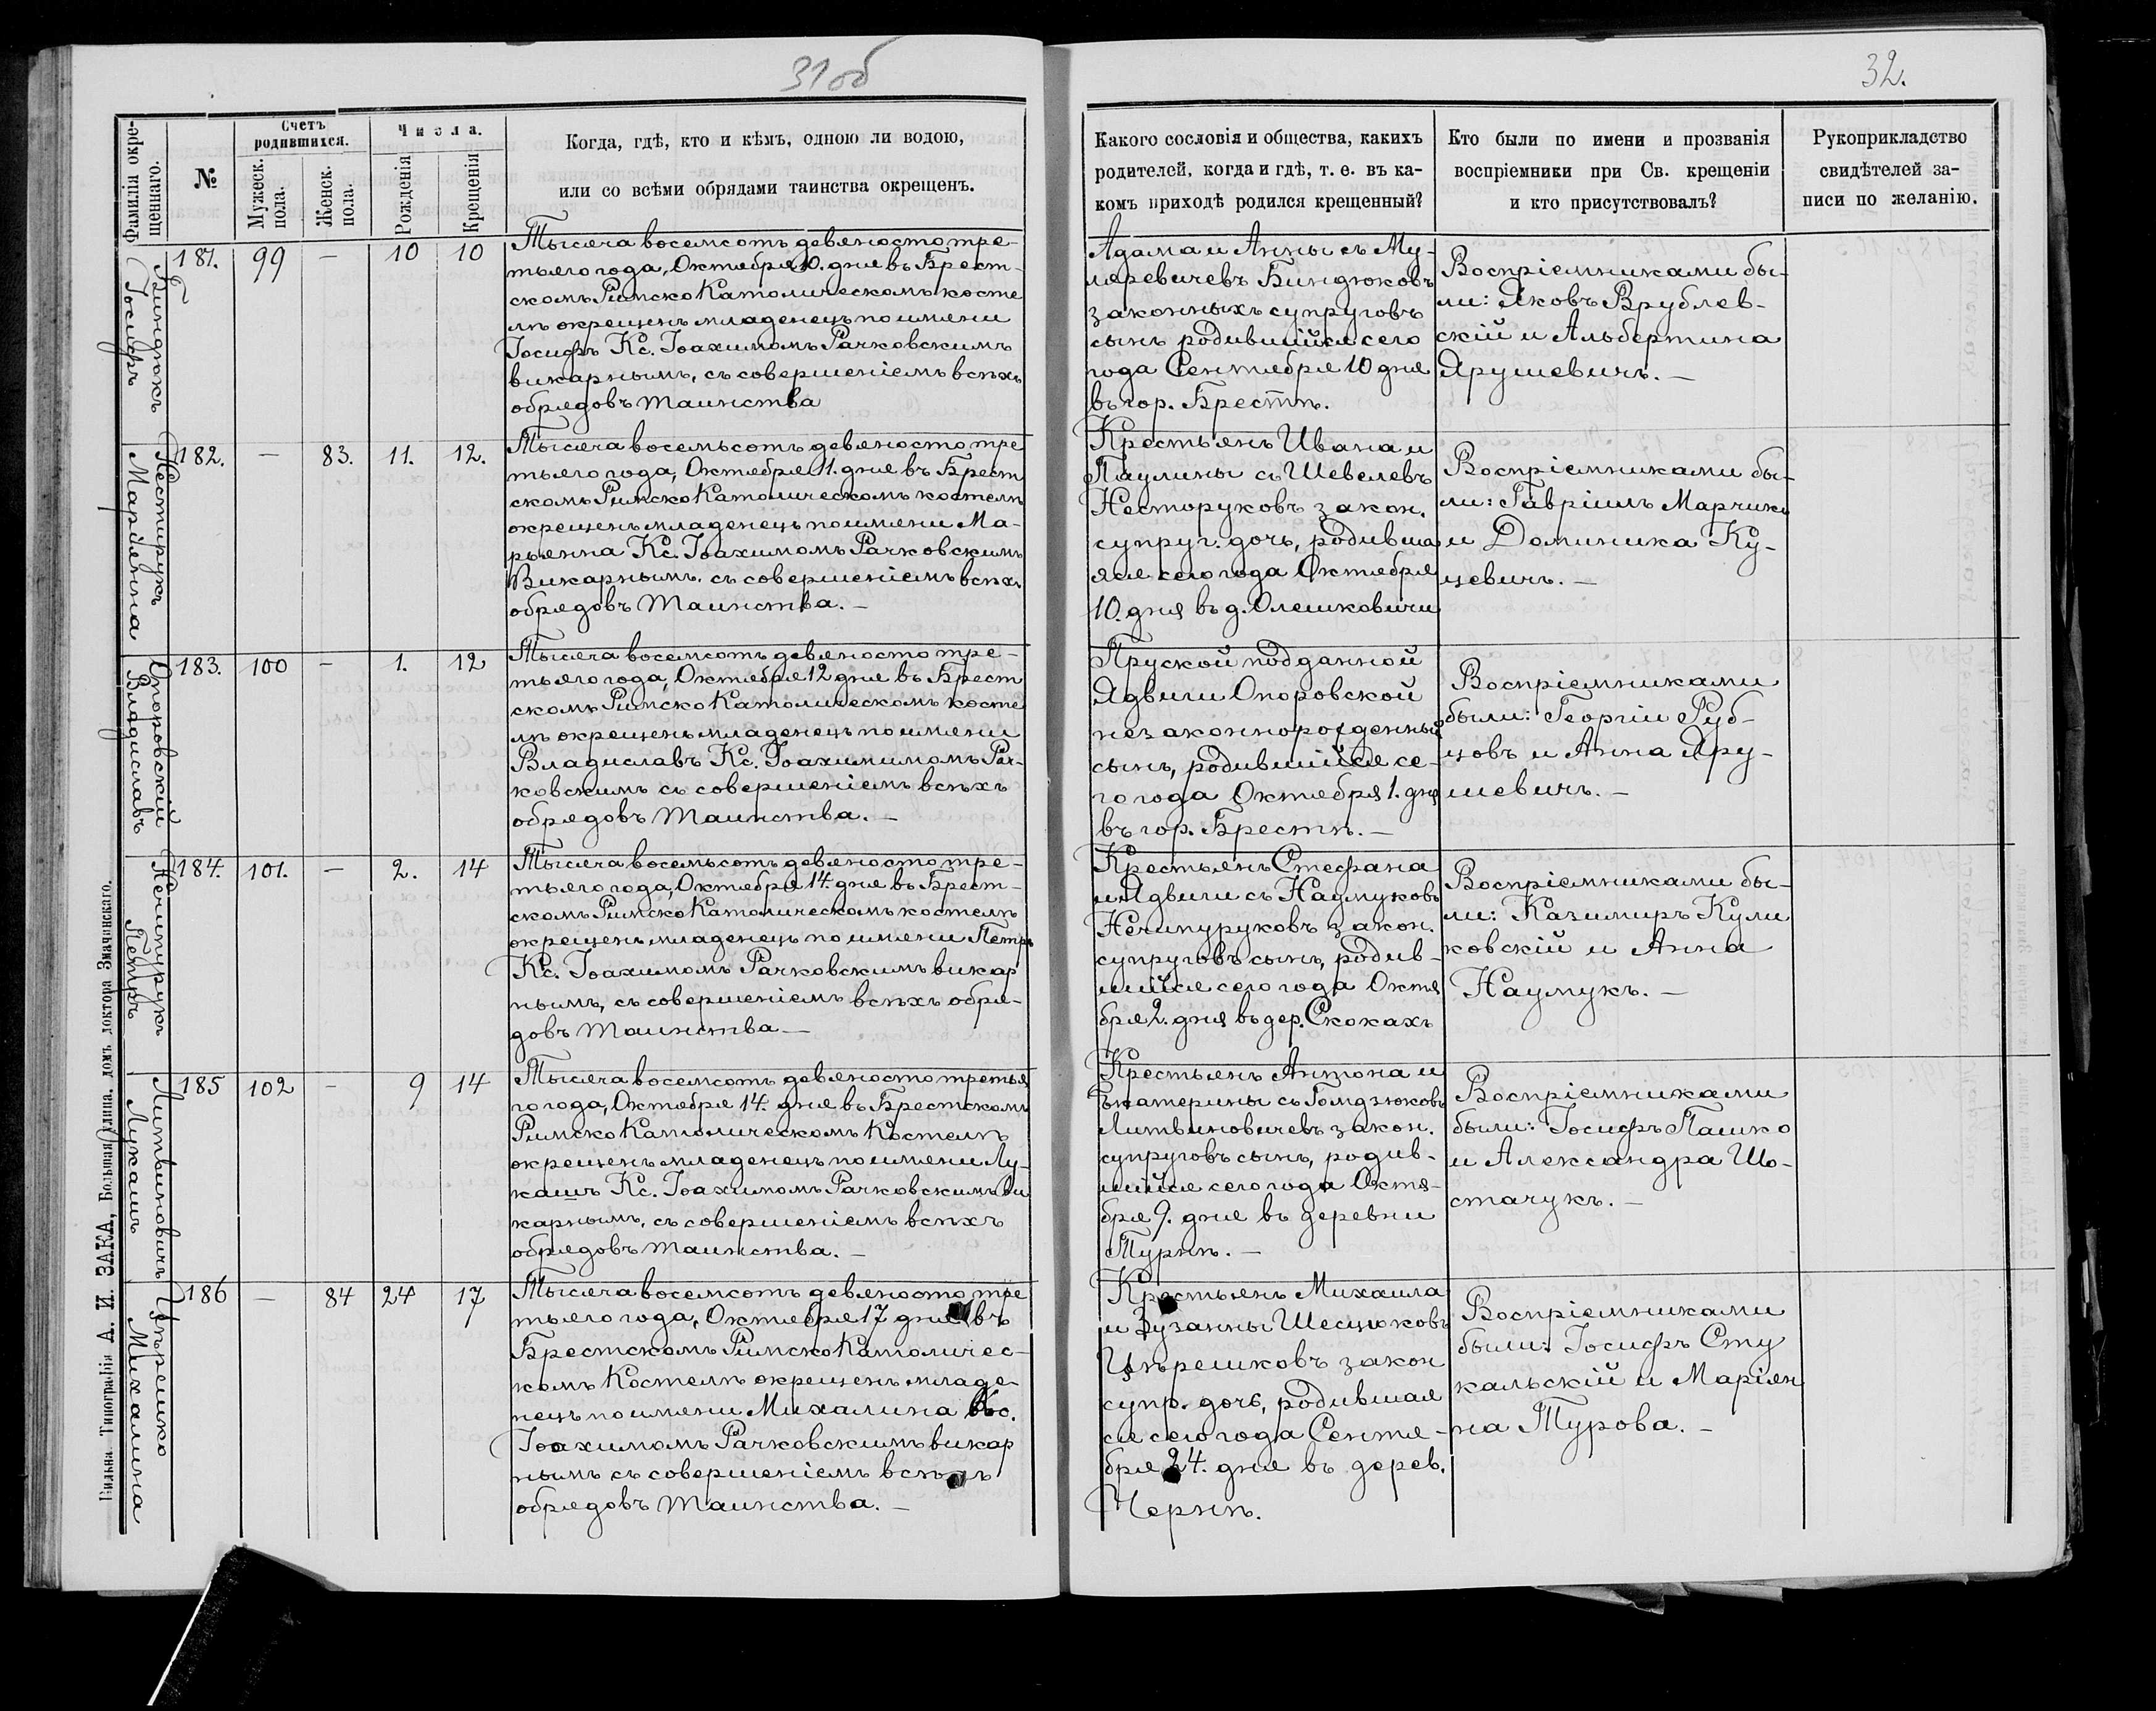 31 об
32.
Фамилія окре-
щеннаго.
№
Счетъ
родившихся.
Мужеск.
пола.
Женск.
пола.
Числа.
Рожденія
Крещенія
Когда, гдѣ, кто и кѣмъ, одною ли водою,
или со всѣми обрядами таинства окрещенъ.
Какого сословія и общества, какихъ
родителей, когда и гдѣ, т. е. въ ка-
комъ приходѣ родился крещенный?
Кто были по имени и прозванія
воспріемники при Св. крещеніи
и кто присутствовалъ?
Рукоприкладство
свидѣтелей за-
писи по желанію.
Биндюкъ
Іосифъ
181. 99 — 10 10
Тысяча восемсотъ девяносто тре-
тьяго года, Октября 10. дня въ Брест-
скомъ Римско Католическомъ косте
лѣ окрещенъ младенецъ по имени
Іосифъ Кс. Іоахимомъ Рачковскимъ
викарнымъ, съ совершеніемъ всѣхъ
обрядовъ таинства
Адама и Анны съ Му-
ляревичевъ Биндюковъ
законныхъ супруговъ
сынъ родившійся сего
года Сентября 10 дня
въ гор. Брестѣ.
Воспріемниками бы-
ли: Яковъ Врублев-
скій и Альбертина
Ярушевичъ. —
Нестирукъ
Марьянна
182. — 83. 11. 12.
Тысяча восемьсотъ девяносто тре
тьяго года, Октября 11. дня въ Брест
скомъ Римско Католическомъ костелѣ
окрещенъ младенецъ по имени Ма-
рьянна Кс. Іоахимомъ Рачковскимъ
Викарнымъ. съ совершеніемъ всѣхъ
обрядовъ таинства. —
Крестьянъ Ивана и
Паулины съ Шевелевъ
Несторуковъ закон.
супруг. дочь, родивша
яся сего года Октября
10. дня въ д. Олешковичи
Воспріемниками бы-
ли: Гавріилъ Марчикъ
и Доминика Ку-
цевичъ. —
Опоровскій
Владиславъ
183. 100 — 1. 12
Тысяча восемсотъ девяносто тре-
тьяго года, Октября 12 дня въ Брест
скомъ Римско Католическомъ косте
лѣ окрещенъ младенецъ по имени
Владиславъ Кс. Іоахимимомъ Рач-
ковскимъ съ совершеніемъ всѣхъ
обрядовъ таинства. —
Пруской подданной
Ядвиги Опоровской
незаконнорожденный
сынъ, родившійся се-
го года Октября 1. дня
въ гор. Брестѣ. —
Воспріемниками
были: Георгіи Руб-
цовъ и Анна Яру-
шевичъ. —
Нечипурукъ
Петръ
184. 101. — 2. 14
Тысяча восемьсотъ девяносто тре-
тьяго года, Октября 14. дня въ Брест-
скомъ Римско Католическомъ костелѣ
окрещенъ младенецъ по имени Петръ
Кс. Іоахимомъ Рачковскимъ викар
нымъ, съ совершеніемъ всѣхъ обря-
довъ таинства —
Крестьянъ Стефана
и Ядвиги съ Наумуковъ
Нечипуруковъ закон.
супруговъ сынъ, родив-
шійся сего года Октя
бря 2. дня въ дер. Скокахъ
Воспріемниками бы-
ли: Казимиръ Кули
ковскій и Анна
Наумукъ. —
Литвиновичъ
Лукашъ
185 102 — 9 14
Тысяча восемсотъ девяносто третья
го года, Октября 14. дня въ Брестскомъ
Римско Католическомъ Костелѣ
окрещенъ младенецъ по имени Лу-
кашъ Кс. Іоахимомъ Рачковскимъ ви
карнымъ, съ совершеніемъ всѣхъ
обрядовъ таинства. —
Крестьянъ Антона и
Екатерины съ Гомдзюковъ
Литвиновичевъ закон.
супруговъ сынъ, родив-
шійся сего года Октя-
бря 9. дня въ деревни
Турнѣ. —
Воспріемниками
были: Іосифъ Пашко
и Александра Шо-
стачукъ. —
Цѣрешко
Михалина
186 — 84 24 17
Тысяча восемсотъ девяносто тре
тьяго года, Октября 17 дня въ
Брестскомъ Римско Католичес-
комъ Костелѣ окрещенъ младе-
нецъ по имени Михалина Кс.
Іоахимомъ Рачковскимъ викар
нымъ съ совершеніемъ всѣхъ
обрядовъ таинства. —
Крестьянъ Михаила
и Зузанны Шесцюковъ
Цѣрешковъ закон
супр. дочь, родившая
ся сего года Сентя-
бря 24. дня въ дерев.
Чернѣ.
Воспріемниками
были: Іосифъ Сту
кальскій и Маріян
на Турова. —
Вильна. Типографія А. И. ЗАКА, Большая улица, домъ доктора Змачинскаго.